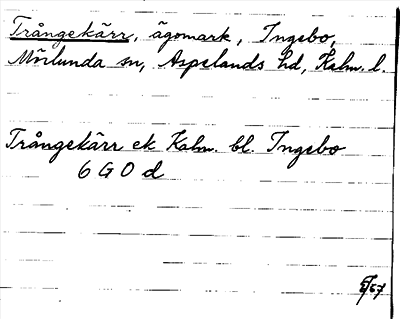 Trångekärr, ägomark, Ingebo,
Mörlunda sn, Aspelands hd, Kalm. l.
Trångekärr ek Kalm. bl. Ingebo
6 G O d